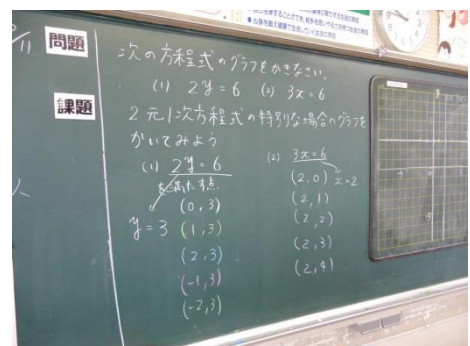 問題
次の方程式のグラフをかきなさい。
(1) 2y=6 (2) 3x=6
課題
2元1次方程式の特別な場合のグラフを
かいてみよう
(1) 2y=6
を満たす点
(0,3)
y=3 (1,3)
(2,3)
(-1,3)
(-2,3)
(2) 3x=6
(2,0) x=2
(2,1)
(2,2)
(2,3)
(2,4)